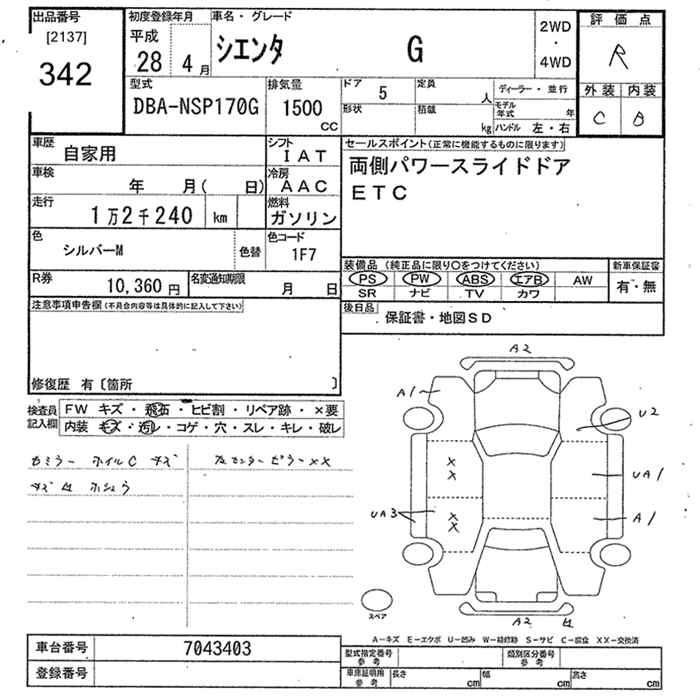 出品番号
[2137]
342
初度登録年月
平成
28 4 月
車名・グレード
シエンタ G
2WD
・
4WD
評価点
R
外装 内装
C B
型式
DBA-NSP170G
排気量
1500
cc
ドア 5
形状
定員 人
積載 kg
ディーラー・並行
モデル年式 年
ハンドル 左・右
車歴 自家用
シフト
IAT
車検 年 月( 日)
冷房
AAC
走行 1万2千240 km
燃料
ガソリン
色 シルバーM 色替
色コード
1F7
R券 10,360 円
名変通知期限 月 日
セールスポイント(正常に機能するものに限ります)
両側パワースライドドア
ETC
装備品(純正品に限り○をつけてください)
PS PW ABS エアB AW
SR ナビ TV カワ
新車保証書
有・無
後日品 保証書・地図SD
注意事項申告欄(不具合内容等は具体的に記入して下さい)
修復歴 有〔箇所 〕
検査員記入欄
FW キズ・飛石・ヒビ割・リペア跡・×要
内装 キズ・汚レ・コゲ・穴・スレ・キレ・破レ
カミラー ホイルC キズ
左センターピラー××
A2
A1
U2
×
×
UA1
UA3
×
×
A1
スペア
A2
A-キズ E-エクボ U-凹み W-補修跡 S-サビ C-腐食 XX-交換済
車台番号 7043403
登録番号
型式指定番号 参考
類別区分番号 参考
車庫証明用 参考
長さ cm 幅 cm 高さ cm